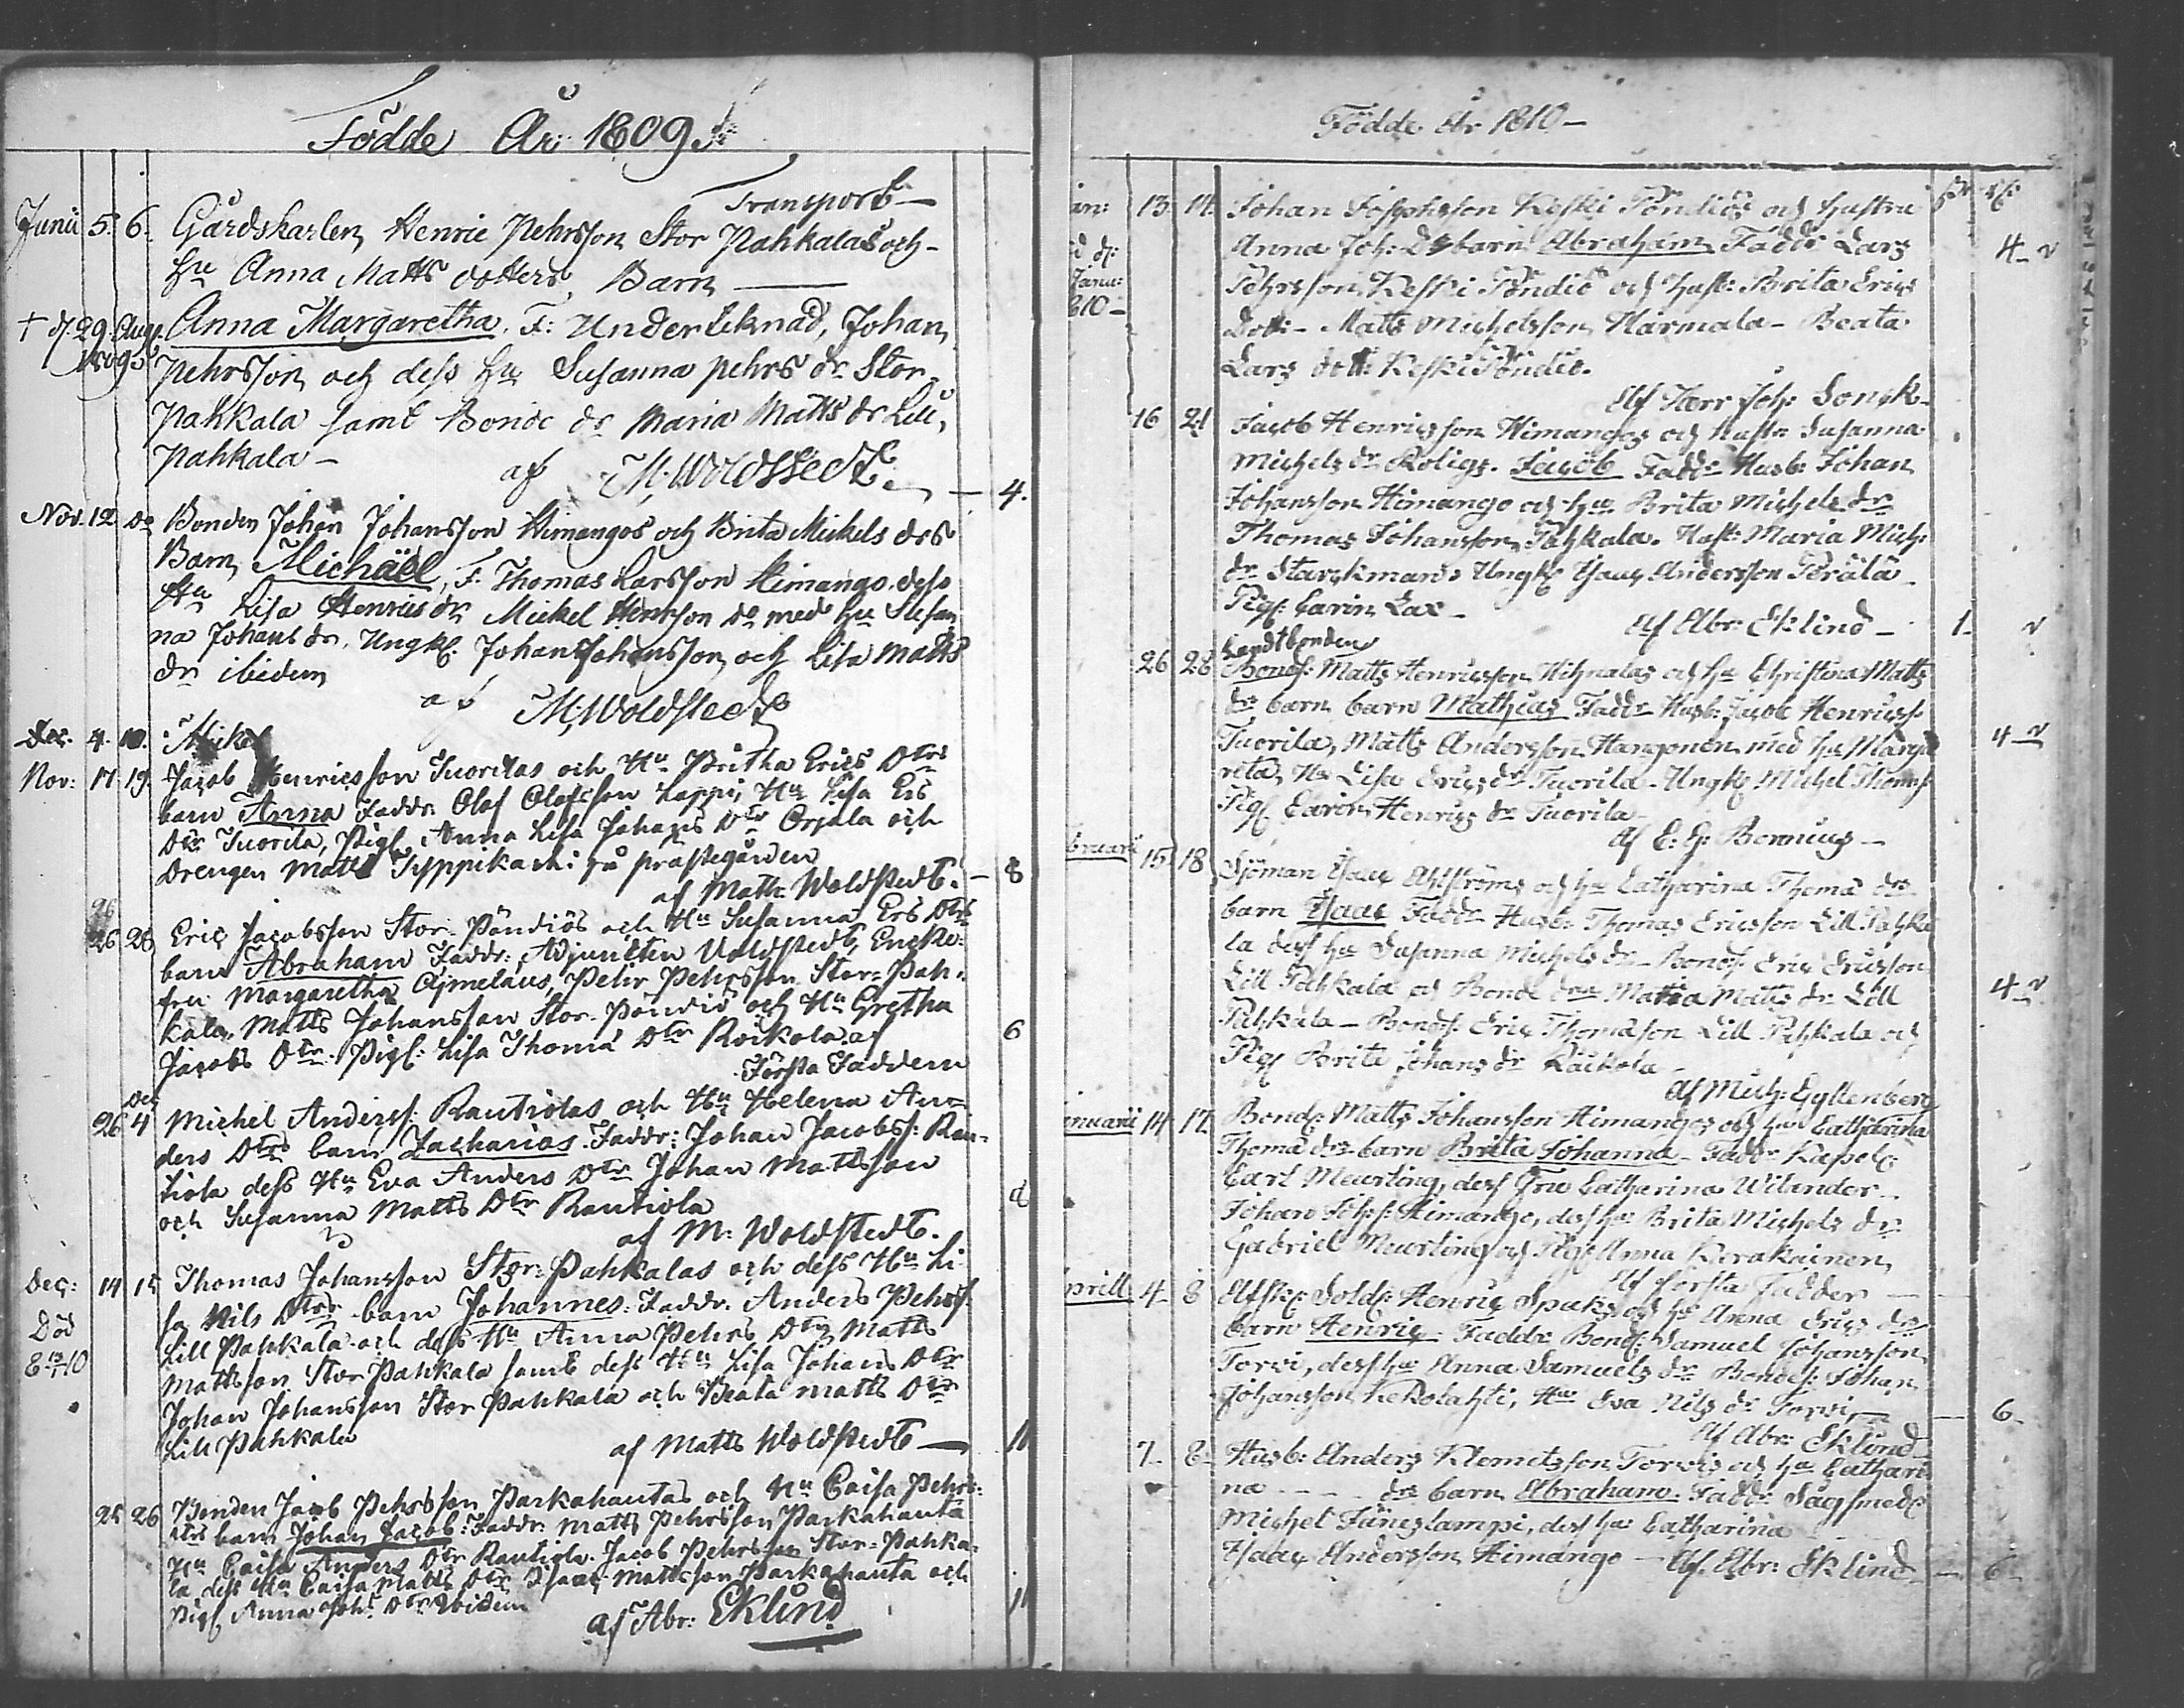 Födde År 1809
Transport
Junii 5. 6. Gårdskarlen Henric Pehrsson Stor Pahkalas och
Hu Anna Matts dotters Barn
† d. 29 Aug. 1809 Anna Margaretha. F: Underteknad, Johan
Pehrsson och dess Hu Susanna pehrs dr Stor
Pahkala samt Bonde dr Maria Matts dr Lill
Pahkala
af M. Woldstedt. 4.
Nov. 12 do Bonden Johan Johansson Himangos och Brita Mickels drs
Barn Michäel, F. Thomas Larsson Himango dess
Hu Lisa Henrics dr Mickel Henrsson do med Hu Susan
na Johans dr. Ungk. Johan Johansson och Lisa Matts
dr ibidem
af M. Woldstedt
Dec. 4. 10. Mickel
Nov: 17 19. Jacob Henricsson Tuorilas och Hu Britha Erics Dtrs
barn Anna Faddr. Olof Olofsson Lappi, Hu Lisa Ers
Dtr Tuorila, Pigl. Anna Lisa Johans Dtr Orjala och
Drengen Matts Typpikach: på prästegården
af Matts Woldstedt. 8
26 28 Eric Jacobsson Stor-Pöndiös och Hu Susanna Ers Dtrs
barn Abraham Faddr: Adjuncten Voldstedt, Encke-
fru Margaretha Ajmelaus, Pehr Pehrsson Stor-Pah-
kala, Matts Johansson Stor-Pöndiö och Hu Gretha
Jacobs Dtr. Pigl: Lisa Thomæ Dtr Roikola. af 6
Första Faddern
Dec
26 4 Michel Anderss: Rautiolas och Hu Helena An-
ders Dtrs barn Zacharias. Faddr: Johan Jacobss: Rau-
tiola dess Hu Eva Anders Dtr Johan Mattsson
och Susanna Matts Dtr Rautiola
af M: Woldstedt.
Dec: 14 15 Thomas Johansson Stor-Pahkalas och dess Hu Li-
sa Nils Dtrs barn Johannes: Faddr. Anders Pehrs:
Död Lill Pahkala och dess Hu Anna Pehrs Dtr Matts
Mattsson Stor Pahkala samt dess Hu Lisa Johans Dtr
Johan Johansson Stor Pahkala och Beata Matts Dtr
Lill Pahkala
af Matts Woldstedt
25 26 Bonden Jacob Pehrsson Parkahautas och Hu Caisa Pehrs
dtrs barn Johan Jacob: Faddr: Matts Pehrsson Parkahauta
Hu Caisa Anders Dtr Rautiola. Jacob Pehrsson Stor-Pahka-
la, dess Hu Caisa Matts Dtr Isaac Mattsson Parkahauta och
Pigl Anna Joh: Dtr Ibidem
af Abr: Eklund
Födde År 1810
13. 14. Johan Josephsson Keski Pöndiös och Hustru
Anna Joh: Ds barn Abraham Faddr Lars 4
Pehrsson Keski Pöndiö och Hust: Brita Erics
Dott: Matts Michelsson Härmälä Beata
Lars dott: Keski Pöndiö.
Af Herr Joh: Sonck
16 21 Jacob Henricsson Himangos och Hustru Susanna
Michels dr Roligs. Jacob Faddr Husb: Johan
Johansson Himango och Hu Brita Michels dr
Thomas Johansson Pahkala. Hust: Maria Mich:
dr Starckman. Ungk Isaac Andersson Perälä
Pig: Carin Lax
Af Abr: Eklund 1.
Landtbonden
26 28 Bond: Matts Henricsson Hihnalas och Hu Christina Matts
drs barn barn Mathias Faddr Husb: Jacob Henricss
Tuorila, Matts Andersson Hangonen med Hu Marga 4
reta, Hu Lisa Erics dr Tuorila. Ungk Michel Thomæs
Pig Carin Henrics dr Tuorila
Af E: G: Bonnius
15 18 Sjöman Isaac Ahlströms och Hu Catharina Thomæ drs
barn Isaac Faddr Husb: Thomas Ericsson Lill Pahka
la dess Hu Susanna Michels dr Bonds Eric Ericsson
Lill Pahkala och Bonde dr Maria Matts dr Lill 4
Pahkala Bonds: Eric Thomæson Lill Pahkala och
Pig Brita Johans dr Räikola
Af Mich: Gyllenberg
14 17. Bond: Matts Johansson Himangos och Hu Catharina
Thomæ drs barn Brita Johanna Faddr Kapel:
Carl Meurling, dess Fru Catharina Wilander
Johan Johs: Himango, dess Hu Brita Michels dr
Gabriel Meurling och Pig Anna Kerakainen
Af första Fadder
prill 4 8 Afsk: Sold: Henric Spaks och Hu Anna Erics drs
barn Henric Faddr Bond: Samuel Johansson
Torvi, dess Hu Anna Samuels dr Bondes: Johan
Johansson Kekolahti, Hu Eva Nils dr Torvi 6
Af Abr: Eklund
7 8 Husb: Anders Klemetsson Torvis och Hu Cathari
na drs barn Abraham. Faddr Sågsmed
Michel Jänislampi, dess Hu Catharina
Isaac Andersson Himango Af. Abr: Eklund 6